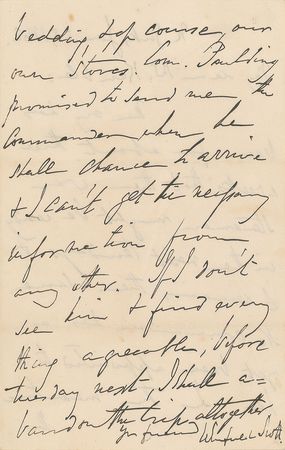 bedding, & of course, our
own Stores. Com. Paulding
promised to send me the
Commander when he
shall chance to arrive
& I can't get the necessary
information from
any other. If I don't
see him & find every
thing agreeable, before
tuesday next, I shall a-
bandon the trip altogether.
Winfield Scott.